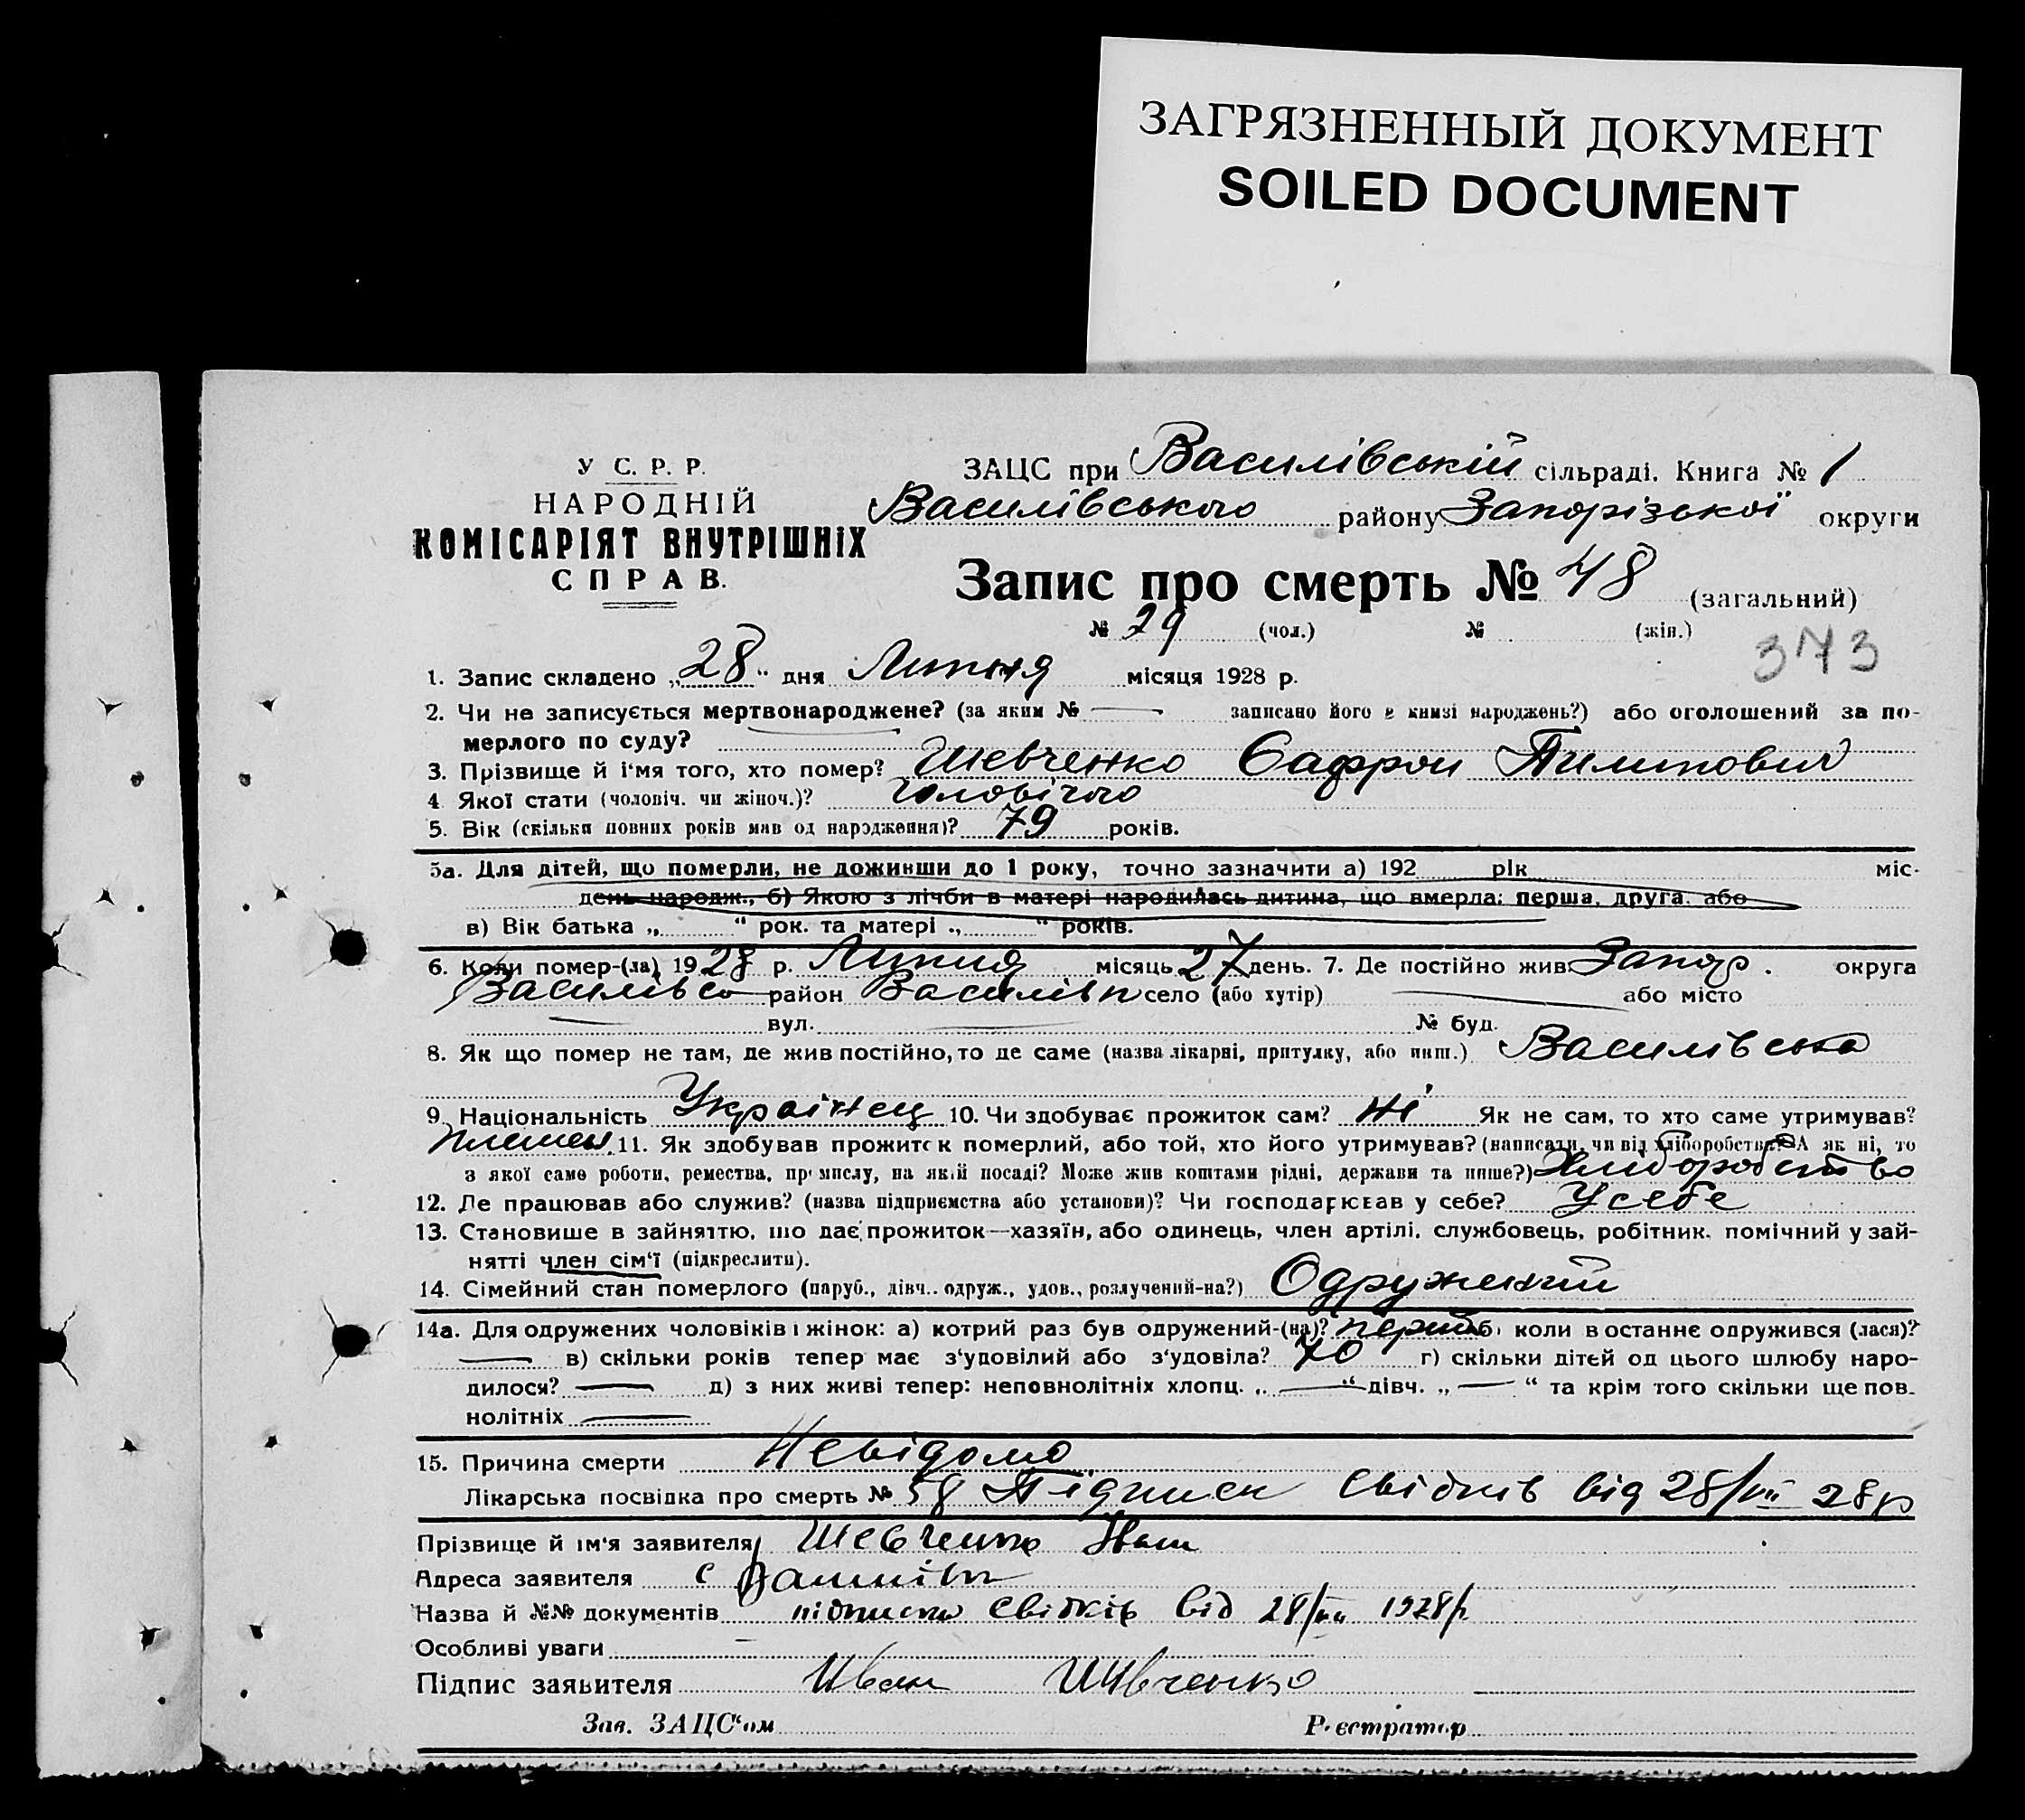 ЗАГРЯЗНЕННЫЙ ДОКУМЕНТ
SOILED DOCUMENT
У С. Р. Р.
НАРОДНІЙ
КОМІСАРІЯТ ВНУТРІШНІХ
СПРАВ.
ЗАЦС при Василівській сільраді. Книга № 1
Василівського району Запорізької округи
Запис про смерть № 48 (загальний)
№ 29 (чол.) № (жін.)
373
1. Запис складено „28“ дня Липня місяця 1928 р.
2. Чи не записується мертвонароджене? (за яким № — записано його в книзі народжень?) або оголошений за по-
мерлого по суду?
3. Прізвище й і'мя того, хто помер? Шевченко Сафрон Пилипович
4 Якої стати (чоловіч. чи жіноч.)? чоловічого
5. Вік (скільки повних років мав од народження)? 79 років.
5а. Для дітей, що померли, не доживши до 1 року, точно зазначити а) 192 рік міс.
день народж., б) Якою з лічби в матері народилась дитина, що вмерла: перша, друга. або
в) Вік батька „ “ рок. та матері „ “ років.
6. Коли помер-(ла) 1928 р. Липня місяць 27 день. 7. Де постійно жив Запор. округа
район село (або хутір) — або місто
— вул. — № буд.
8. Як що помер не там, де жив постійно, то де саме (назва лікарні, притулку, або инш.)
9. Національність Українец 10. Чи здобуває прожиток сам? ні Як не сам, то хто саме утримував?
11. Як здобував прожиток померлий, або той, хто його утримував? (написати, чи від хліборобства? А як ні, то
з якої саме роботи, ремества, промислу, на якій посаді? Може жив коштами рідні, держави та инше?) Хліборобство
12. Де працював або служив? (назва підприємства або установи)? Чи господарював у себе? У себе
13. Становище в зайняттю, що дає прожиток—хазяїн, або одинець, член артілі, службовець, робітник. помічний у зай-
нятті член сім'ї (підкреслити).
14. Сімейний стан померлого (паруб., дівч.. одруж., удов., розлучений-на?) Одружений
14а. Для одружених чоловіків і жінок: а) котрий раз був одружений-(на)? б) коли в останнє одружився (лася)?
— в) скільки років тепер має з'удовілий або з'удовіла? 70 г) скільки дітей од цього шлюбу наро-
дилося? — д) з них живі тепер: неповнолітніх хлопц. „—“ дівч. „—“ та крім того скільки ще пов-
нолітніх —
15. Причина смерти Невідомо
Лікарська посвідка про смерть № 58 свідків від 28/VII 28 р
Прізвище й ім'я заявителя Шевченко Иван
Адреса заявителя с
Назва й №№ документів підписка свідків від 28/VII 1928 р.
Особливі уваги —
Підпис заявителя Иван Шевченко
Зав. ЗАЦС“ом Реєстратор